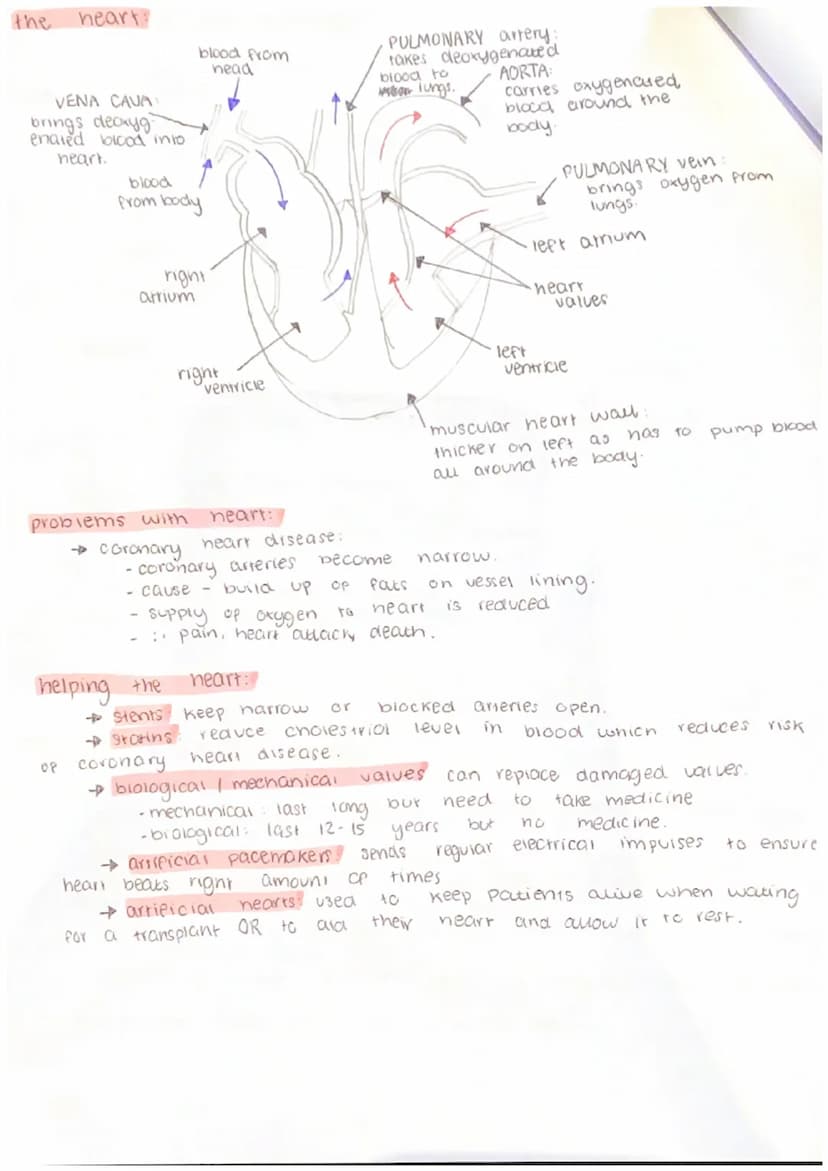 the heart:
blood from
head
PULMONARY artery:
takes deoxygenated
blood to
lungs.
AORTA:
carries oxygenated
blood around the
body.
VENA CAVA:
brings deoxyg-
enated blood into
heart.
blood
from body
PULMONARY vein:
brings oxygen from
lungs.
left atrium
right
atrium
heart
valves
left
ventricle
right
ventricle
muscular heart wall:
thicker on left as has to pump blood
all around the body.
problems with heart:
→ coronary heart disease:
- coronary arteries become narrow.
- cause - build up of fats on vessel lining.
- supply of oxygen to heart is reduced
- ∴ pain, heart attack, death.
helping the heart:
→ stents keep narrow or blocked arteries open.
→ statins: reduce cholestriol level in blood which reduces risk
of coronary heart disease.
→ biological / mechanical valves can replace damaged valves.
- mechanical: last long but need to take medicine
- biological: last 12-15 years but no medicine.
→ artificial pacemakers: sends regular electrical impulses to ensure
heart beats right amount of times
→ artificial hearts: used to keep patients alive when waiting
for a transplant OR to aid their heart and allow it to rest.